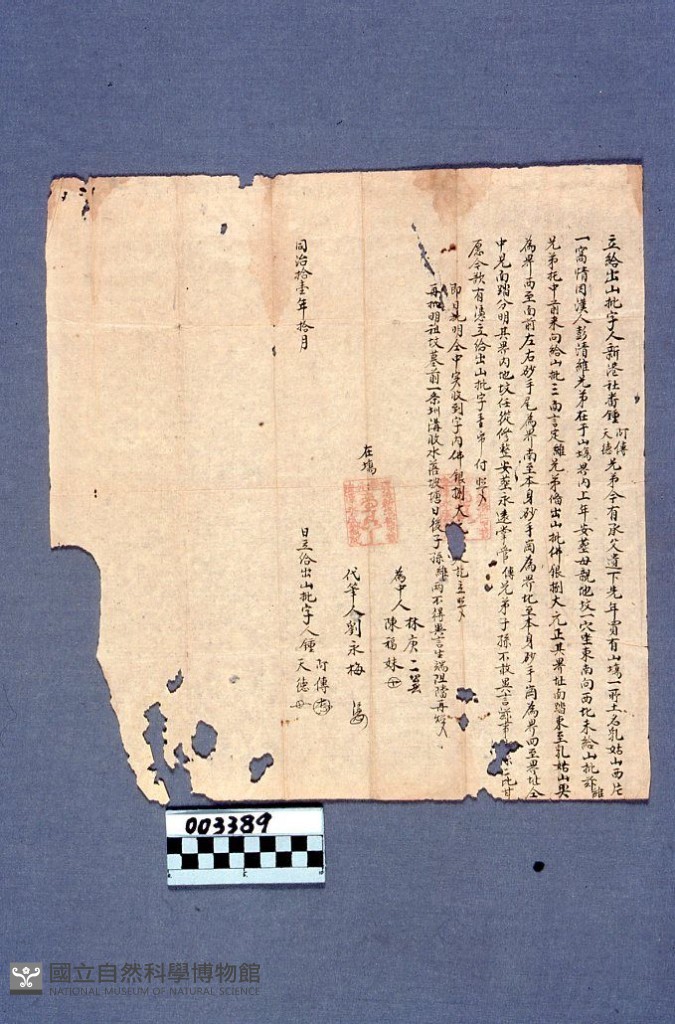 立給出山批字人新港社番鍾阿傳天德兄弟今有承父遺下先年買有山塲一所土名乳姑山西片
一窩情因漢人彭清維兄弟在于山塲界內上年安塟母親地坟一穴坐東南向西北未給山批
兄弟托中前來向給山批三面言定維兄弟偹出山批佛銀捌大元正其界址面踏東至乳姑山
為界西至面前左右砂手尾為界南至本身砂手崗為界北至本身砂手崗為界四至界址全
中見面踏分明其界內地坟任從修整安塟永遠掌管傳兄弟子孫不敢異言
愿今欲有憑立給出山批字壹帋付照
即日批明仝中實收到字內佛銀捌大元
再批明祖坟墓前一条圳溝收水日後子孫維不得異言生端阻攩再照
在塲
為中人林庚二
陳福妹
代筆人劉永梅
同治拾壹年拾月 日立給出山批字人鍾阿傳
天德
003389
5
國立自然科學博物館
NATIONAL MUSEUM OF NATURAL SCIENCE